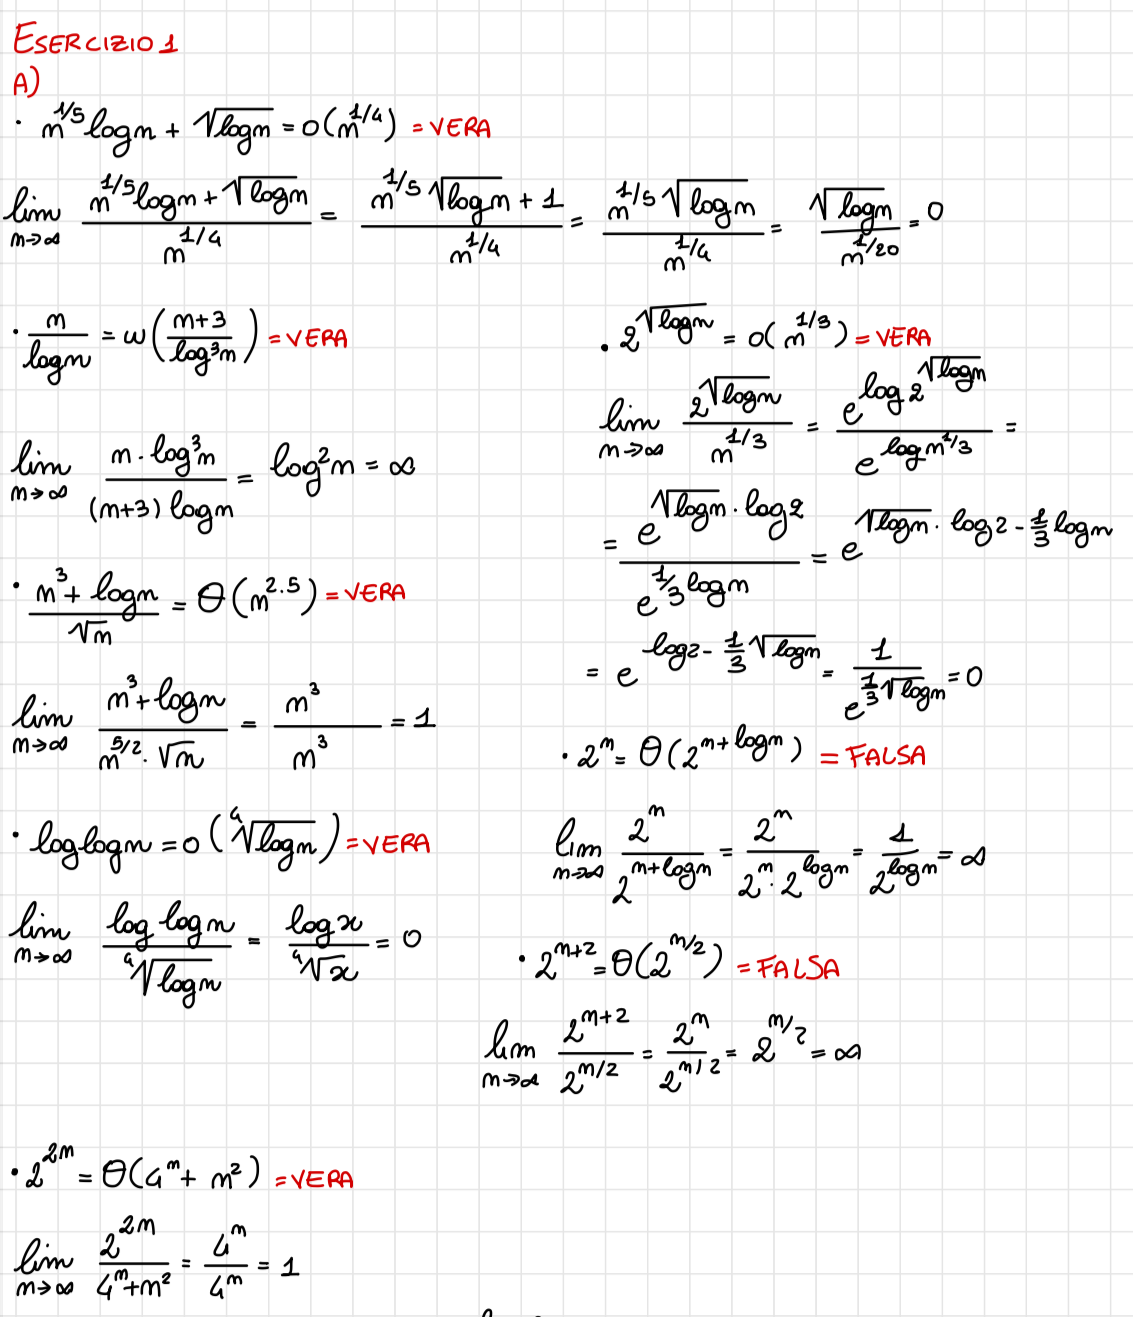 ESERCIZIO 1
A)
· n^{1/5} log n + √(log n) = o(n^{1/4}) = VERA
lim_{n→∞} (n^{1/5} log n + √(log n)) / n^{1/4} = (n^{1/5} √(log n) + 1) / n^{1/4} = (n^{1/5} √(log n)) / n^{1/4} = √(log n) / n^{1/20} = 0
· n / log n = ω((n+3) / log³n) = VERA
lim_{n→∞} (n · log³n) / ((n+3) log n) = log²n = ∞
· (n³ + log n) / √n = Θ(n^{2.5}) = VERA
lim_{n→∞} (n³ + log n) / (n^{5/2} · √n) = n³ / n³ = 1
· log log n = o(⁴√(log n)) = VERA
lim_{n→∞} log log n / ⁴√(log n) = log x / ⁴√x = 0
· 2^{√(log n)} = o(n^{1/3}) = VERA
lim_{n→∞} 2^{√(log n)} / n^{1/3} = e^{log 2^{√(log n)}} / e^{log n^{1/3}} =
= e^{√(log n) · log 2} / e^{1/3 log n} = e^{√(log n) · log 2 - 1/3 log n}
= e^{log 2 - 1/3 √(log n)} = 1 / e^{1/3 √(log n)} = 0
· 2^n = Θ(2^{n + log n}) = FALSA
lim_{n→∞} 2^n / 2^{n + log n} = 2^n / (2^n · 2^{log n}) = 1 / 2^{log n} = ∞
· 2^{n+2} = Θ(2^{n/2}) = FALSA
lim_{n→∞} 2^{n+2} / 2^{n/2} = 2^n / 2^{n/2} = 2^{n/2} = ∞
· 2^{2n} = Θ(4^n + n²) = VERA
lim_{n→∞} 2^{2n} / (4^n + n²) = 4^n / 4^n = 1